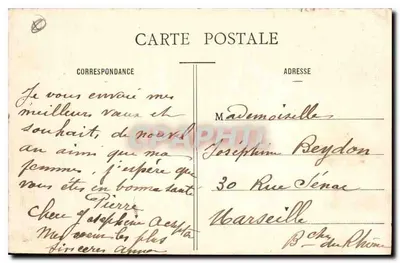 CARTE POSTALE
CORRESPONDANCE
ADRESSE
Je vous envoie mes
meilleurs vœux et
souhaits de nouvel
an ainsi que ma
femmes, j'espère que
vous êtes en bonne santé
Pierre
Chere Josephine
Mes les plus
sinceres
Mademoiselle
Joséphine Beydon
30 Rue Sénac
Marseille
Bches du Rhône
CPAPHIL